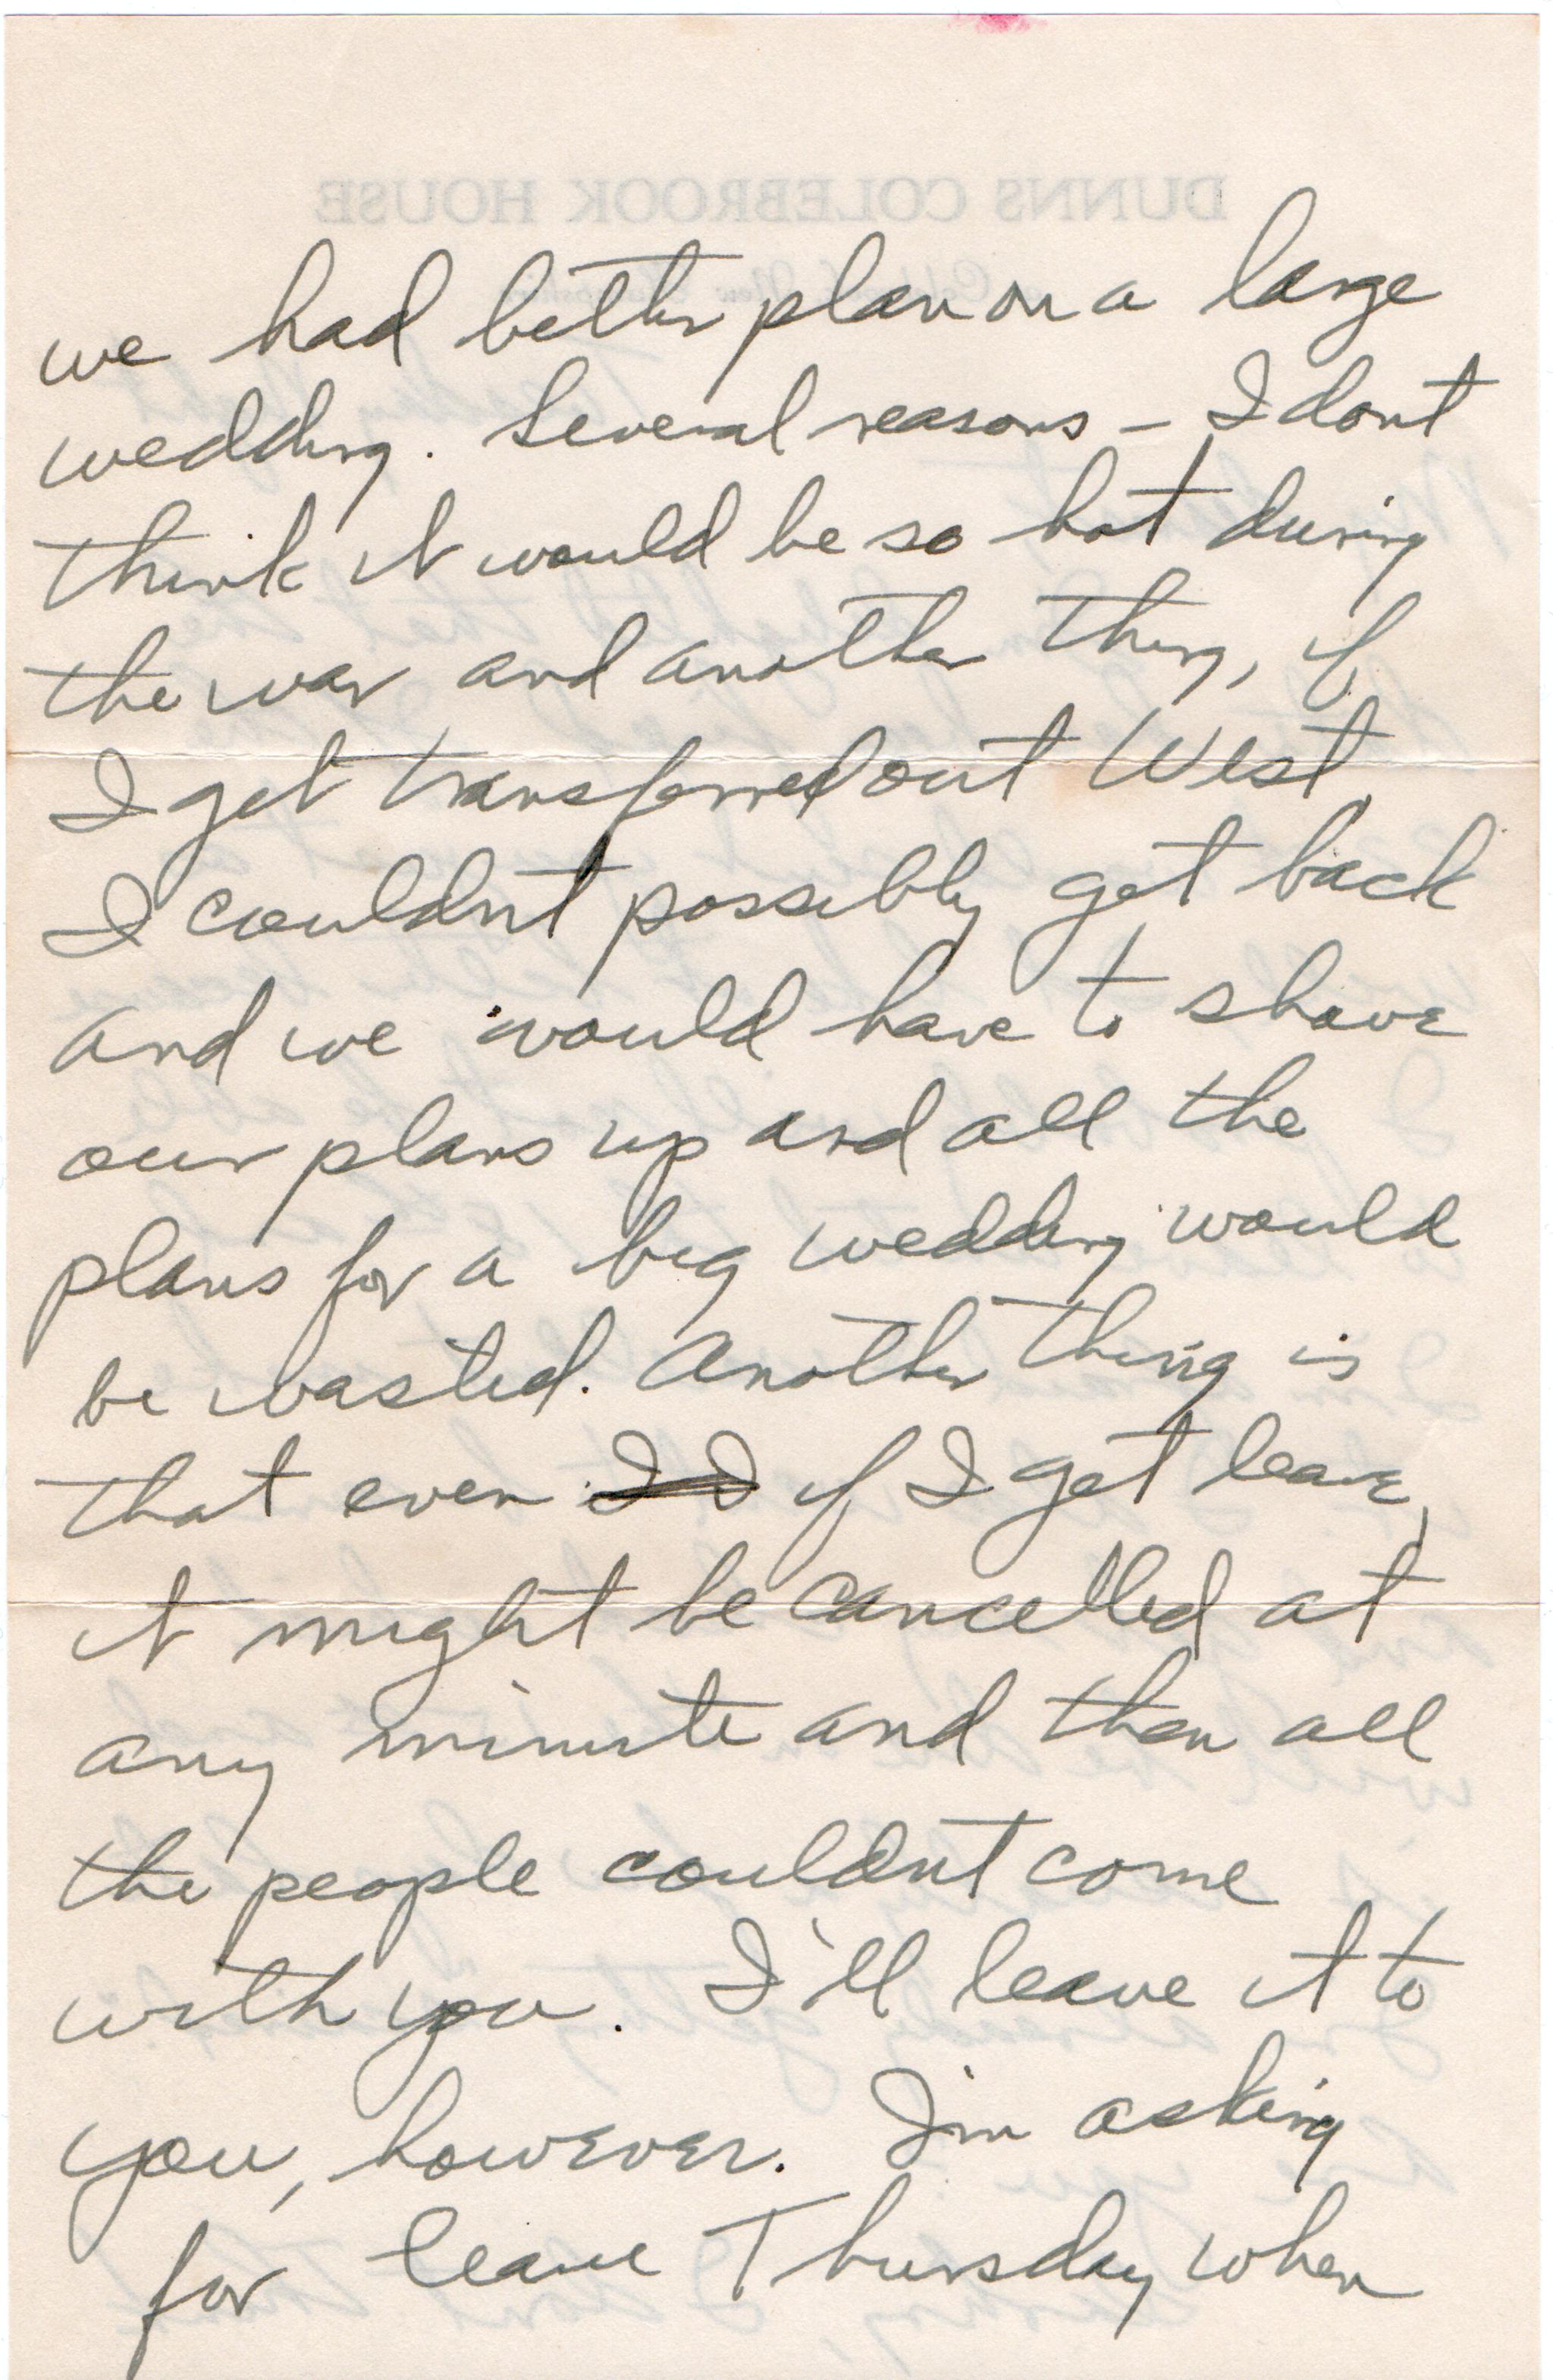 DUNNS COLEBROOK HOUSE
we had better plan on a large
wedding. Several reasons – I dont
think it would be so hot during
the war and another thing, if
I get transferred out West
I couldnt possibly get back
and we would have to shove
our plans up and all the
plans for a big wedding would
be wasted. Another thing is
that even I I if I get leave,
it might be cancelled at
any minute and then all
the people couldnt come
with you. I'll leave it to
you, however. I'm asking
for leave Thursday when